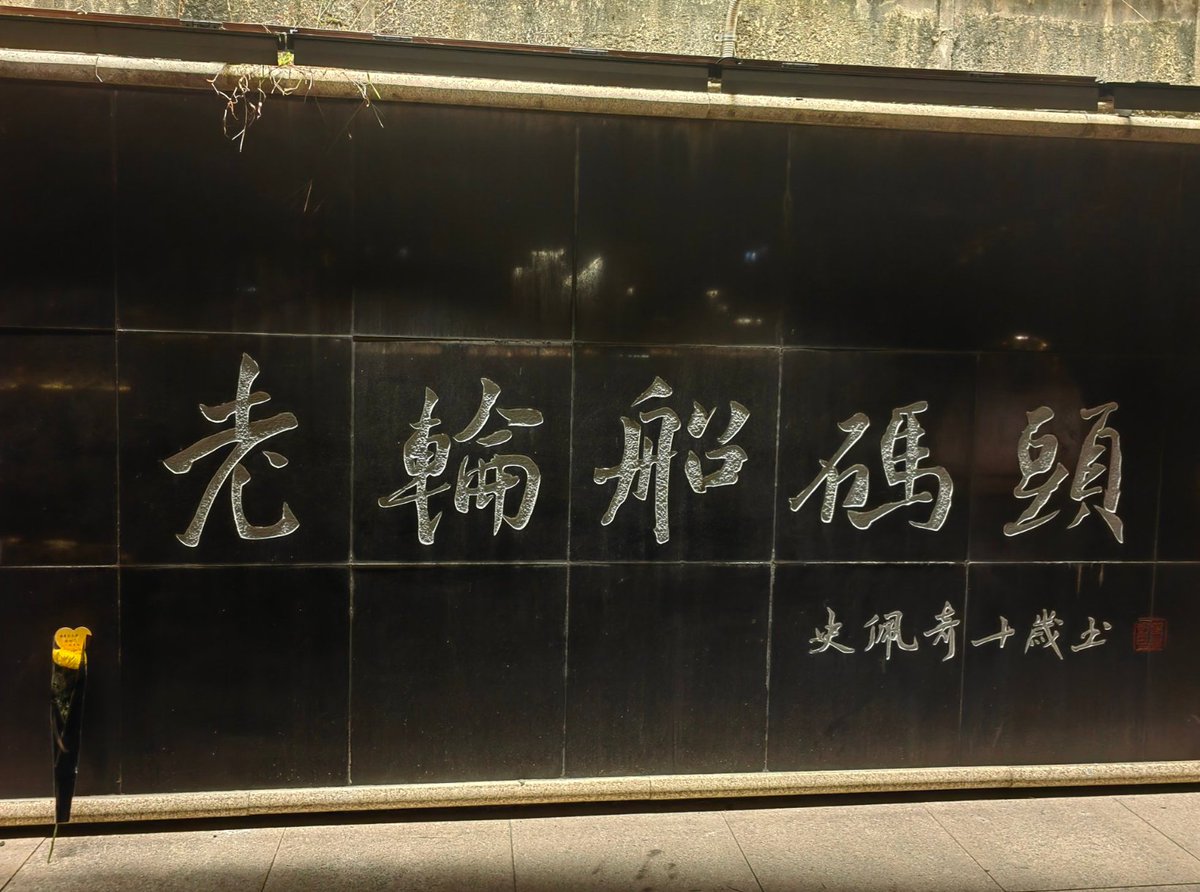 老輪船碼頭
史佩奇十歲书